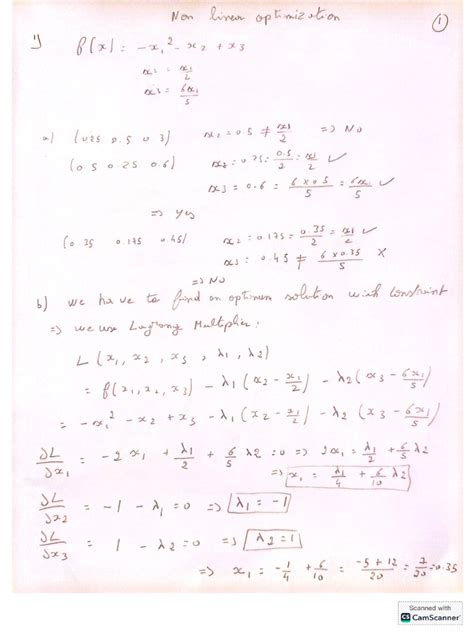 Non linear optimization
①
1) f(x) = -x₁² - x₂ + x₃
x₂ = x₁/2
x₃ = 6x₁/5
a) (0.25 0.5 0.3) x₂ = 0.5 ≠ x₁/2 => No
(0.5 0.25 0.6) x₂ = 0.25 = 0.5/2 = x₁/2 ✓
x₃ = 0.6 = 6×0.5/5 = 6x₁/5 ✓
=> yes
(0.35 0.175 0.45) x₂ = 0.175 = 0.35/2 = x₁/2 ✓
x₃ = 0.45 ≠ 6×0.35/5 ×
=> NO
b) we have to find an optimum solution with constraint
=> we use Lagrange Multiplier:
L(x₁, x₂, x₃, λ₁, λ₂)
= f(x₁, x₂, x₃) - λ₁(x₂ - x₁/2) - λ₂(x₃ - 6x₁/5)
= -x₁² - x₂ + x₃ - λ₁(x₂ - x₁/2) - λ₂(x₃ - 6x₁/5)
∂L/∂x₁ = -2x₁ + λ₁/2 + 6/5 λ₂ = 0 => 2x₁ = λ₁/2 + 6/5 λ₂
=> x₁ = λ₁/4 + 6/10 λ₂
∂L/∂x₂ = -1 - λ₁ = 0 => λ₁ = -1
∂L/∂x₃ = 1 - λ₂ = 0 => λ₂ = 1
=> x₁ = -1/4 + 6/10 = -5+12/20 = 7/20 = 0.35
Scanned with
CS CamScanner